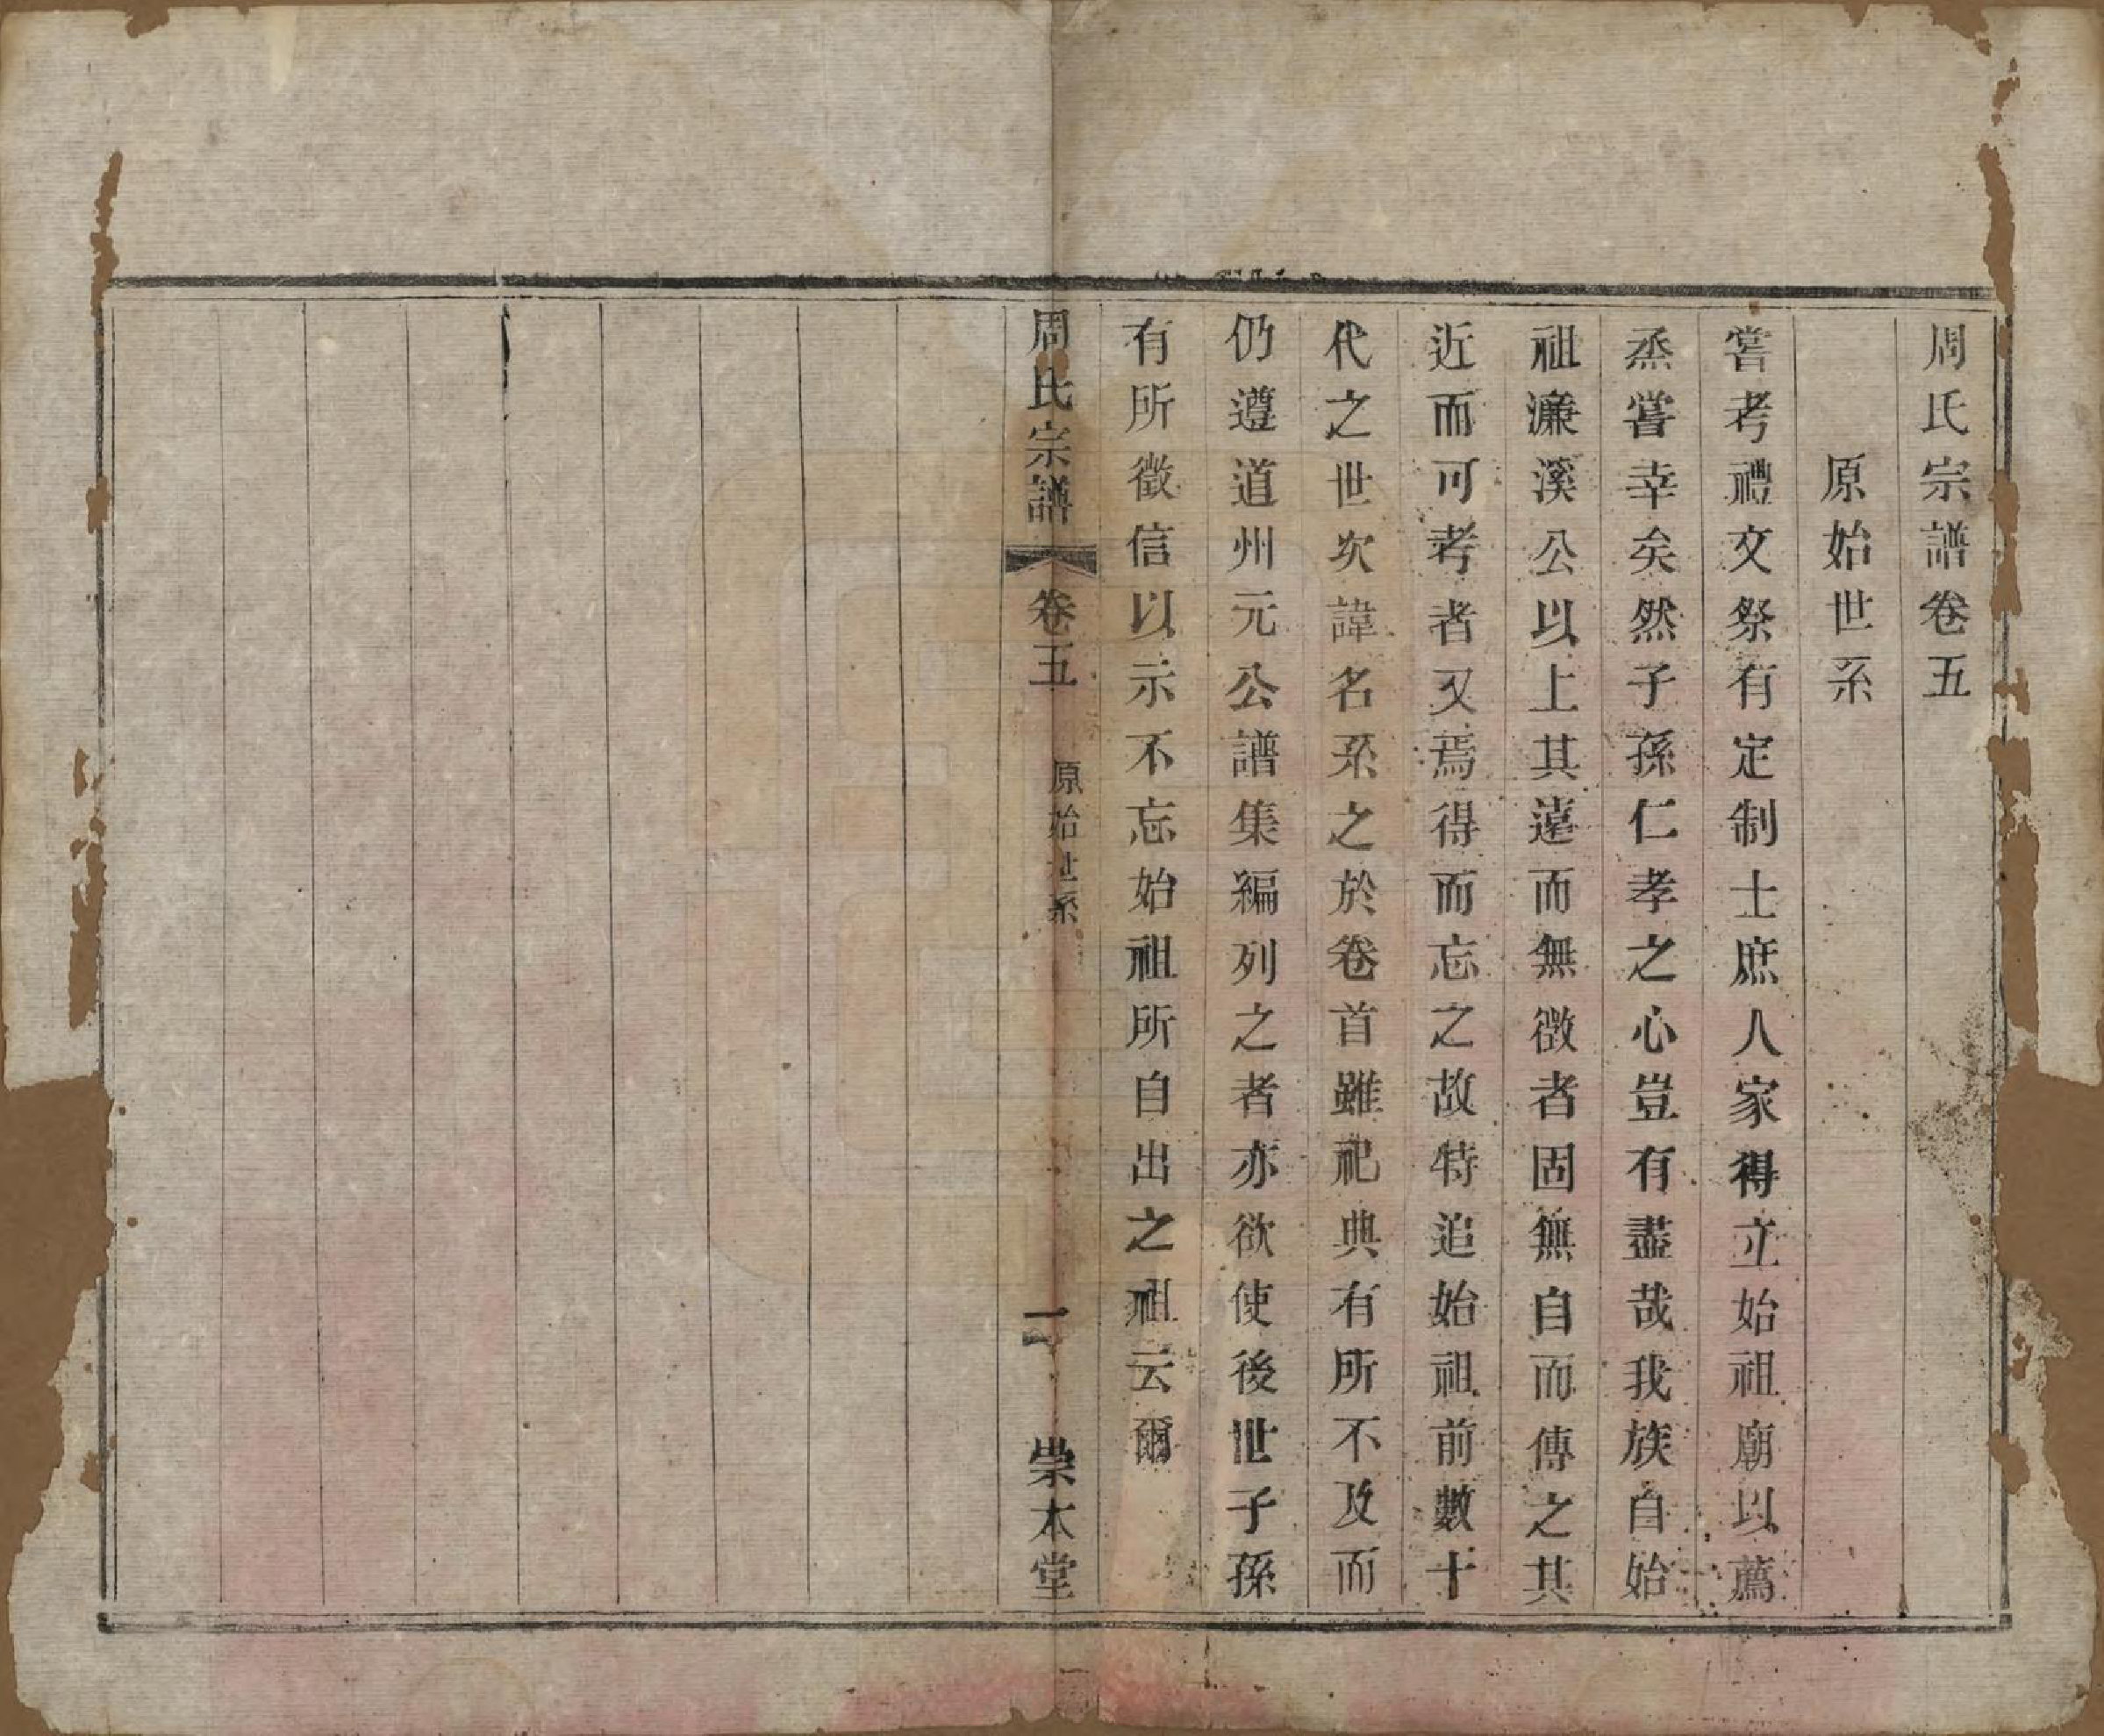 周氏宗譜卷五
原始世系
嘗考禮文祭有定制士庶人家得立始祖廟以薦
烝嘗幸矣然子孫仁孝之心豈有盡哉我族自始
祖濂溪公以上其遠而無徵者固無自而傳之其
近而可考者又焉得而忘之故特追始祖前數十
代之世次諱名系之於卷首雖祀典有所不及而
仍遵道州元公譜集編列之者亦欲使後世子孫
有所徵信以示不忘始祖所自出之祖云爾
周氏宗譜 卷五 原始世系 一 崇本堂